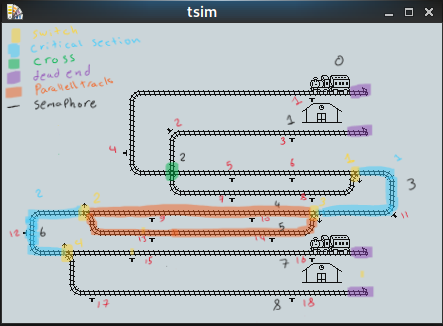 tsim
switch
critical section
cross
dead end
Parallell track
semaphore
0
1
2
1
3
4
2
5
6
7
8
3
2
4
9
10
11
5
12
6
13
14
15
7
16
17
8
18